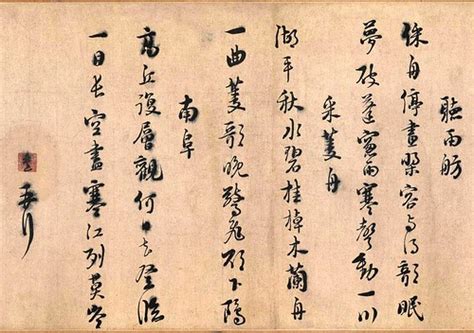 聽雨舫
綵舟停畫槳容與得欹眠
夢破蓬窗雨寒聲動一川
采菱舟
湖平秋水碧桂棹木蘭舟
一曲菱歌晚驚飛欲下鷗
南阜
高丘復層觀何日去登臨
一目長空盡寒江列莫岑
熹